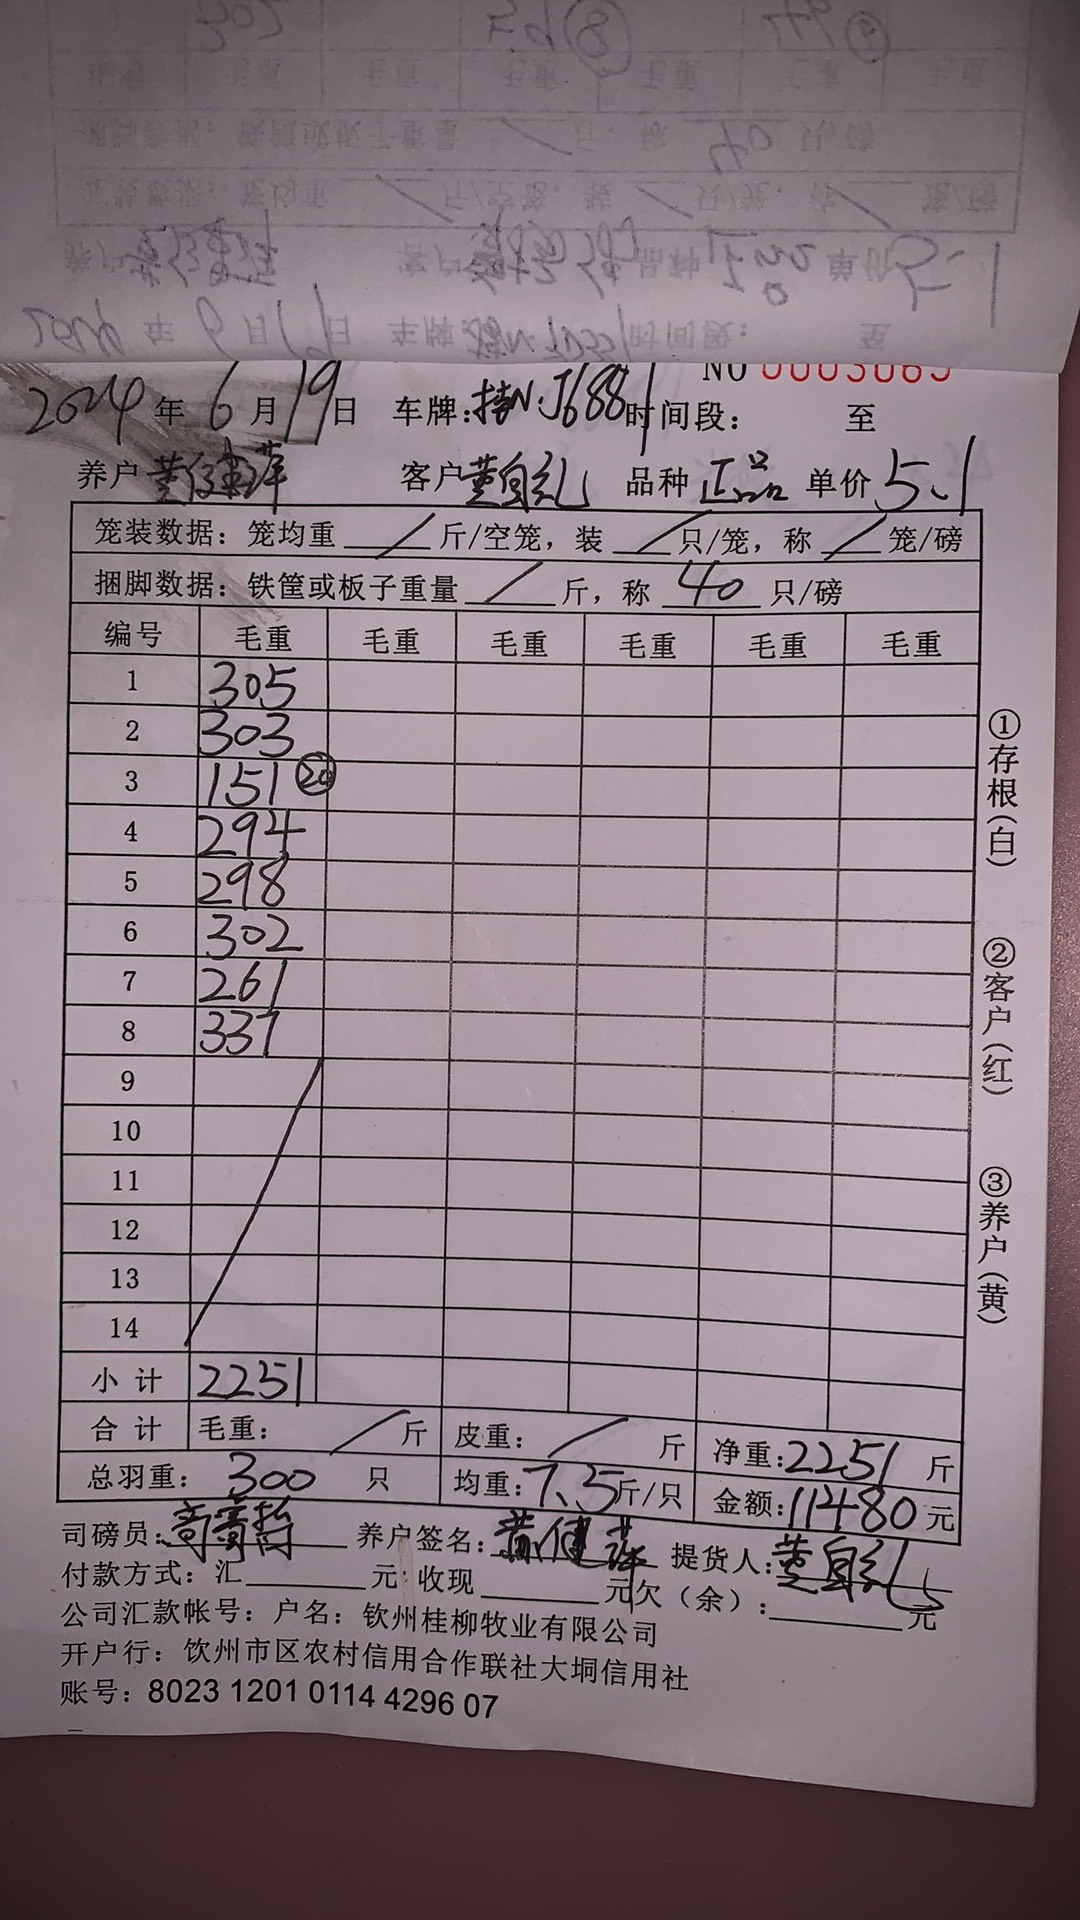 NO 0003065
2024 年 6 月 19 日 车牌:桂N·J6881 时间段: 至
养户 客户 黄自礼 品种 正品 单价 5.1
笼装数据:笼均重 / 斤/空笼,装 / 只/笼,称 / 笼/磅
捆脚数据:铁筐或板子重量 / 斤,称 40 只/磅
编号 毛重 毛重 毛重 毛重 毛重 毛重
1 305
2 303
3 151 ⑳
4 294
5 298
6 302
7 261
8 337
9
10
11
12
13
14
小计 2251
合计 毛重: / 斤 皮重: / 斤 净重:2251 斤
总羽重: 300 只 均重:7.5 斤/只 金额:11480 元
司磅员: 养户签名: 提货人:黄自礼
付款方式:汇 元 收现 元欠(余): 元
公司汇款帐号:户名:钦州桂柳牧业有限公司
开户行:饮州市区农村信用合作联社大垌信用社
账号:8023 1201 0114 4296 07
①存根(白)
②客户(红)
③养户(黄)